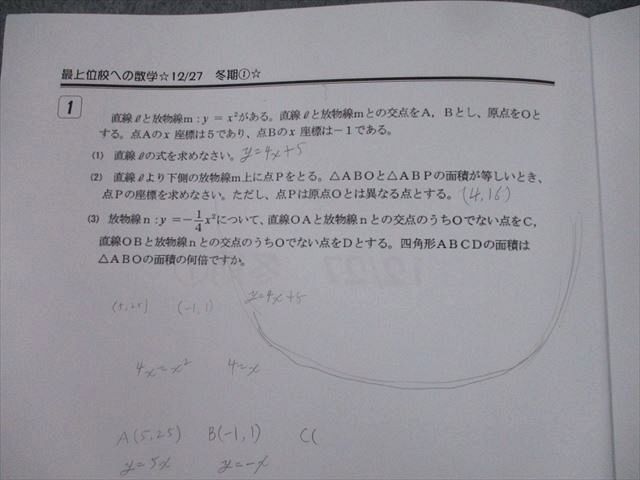 最上位校への数学☆12/27 冬期①☆
1
直線ℓと放物線m:y = x²がある。直線ℓと放物線mとの交点をA，Bとし、原点をOと
する。点Aのx座標は5であり、点Bのx座標は－1である。
(1) 直線ℓの式を求めなさい。 y=4x+5
(2) 直線ℓより下側の放物線m上に点Pをとる。△ABOと△ABPの面積が等しいとき、
点Pの座標を求めなさい。ただし、点Pは原点Oとは異なる点とする。 (4,16)
(3) 放物線n:y=－1/4x²について、直線OAと放物線nとの交点のうちOでない点をC，
直線OBと放物線nとの交点のうちOでない点をDとする。四角形ABCDの面積は
△ABOの面積の何倍ですか。
(5,25) (-1,1) y=4x+5
4x=x² 4=x
A(5,25) B(-1,1) C(
y=5x y=-x